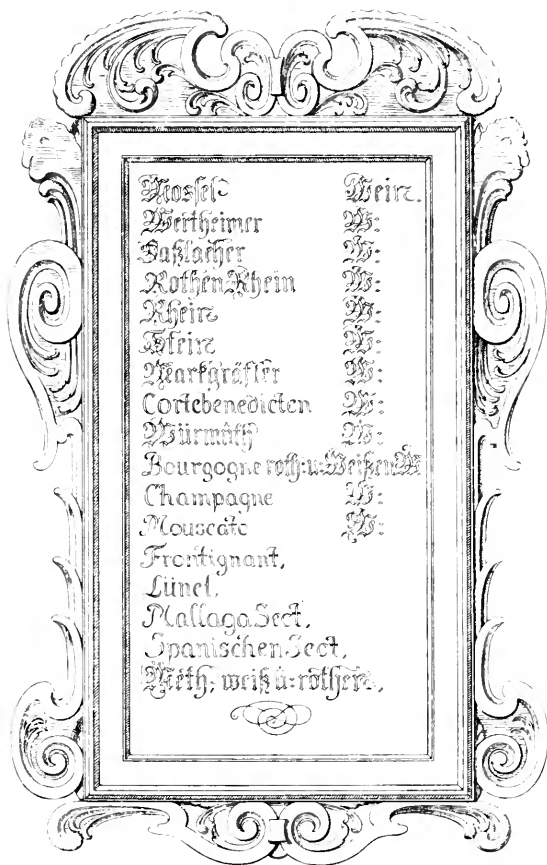 Mossel Wein.
Wertheimer W:
Haßlacher W:
Rothen Rhein W:
Rhein W:
Stein W:
Markgräffler W:
Cortebenedicten W:
Würmüth W:
Bourgogne roth: u: Weißen W
Champagne W:
Mouscato W:
Frontignant,
Lünel,
Mallaga Sect,
Spanischen Sect,
Meth; weiß ŭ: rother,